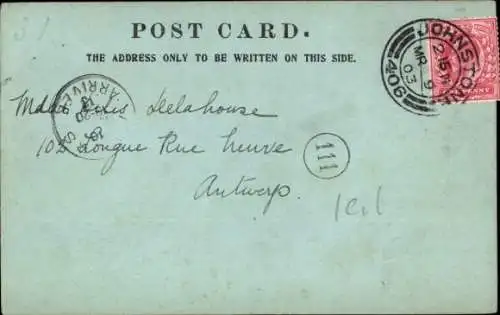 POST CARD.
THE ADDRESS ONLY TO BE WRITTEN ON THIS SIDE.
JOHNSTONE
2 15 PM
MR 9
03
406
ARRIVÉE
Longue Rue Neuve
111
Antwerp.